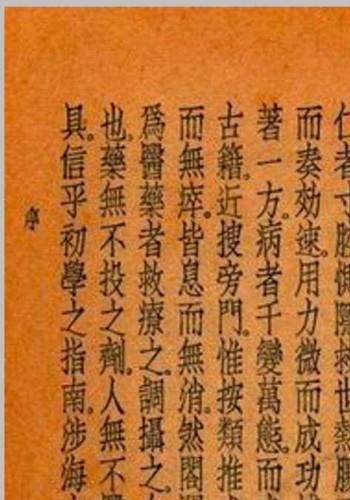 仁者寸
而奏効速。用力微而成功
著一方。病者千變萬態。而
古籍。近搜旁門。惟按類推
而無瘁。皆息而無消。然閭
爲醫藥者救療之。調攝之。
也。藥無不投之劑。人無不
具。信乎初學之指南。涉海
序